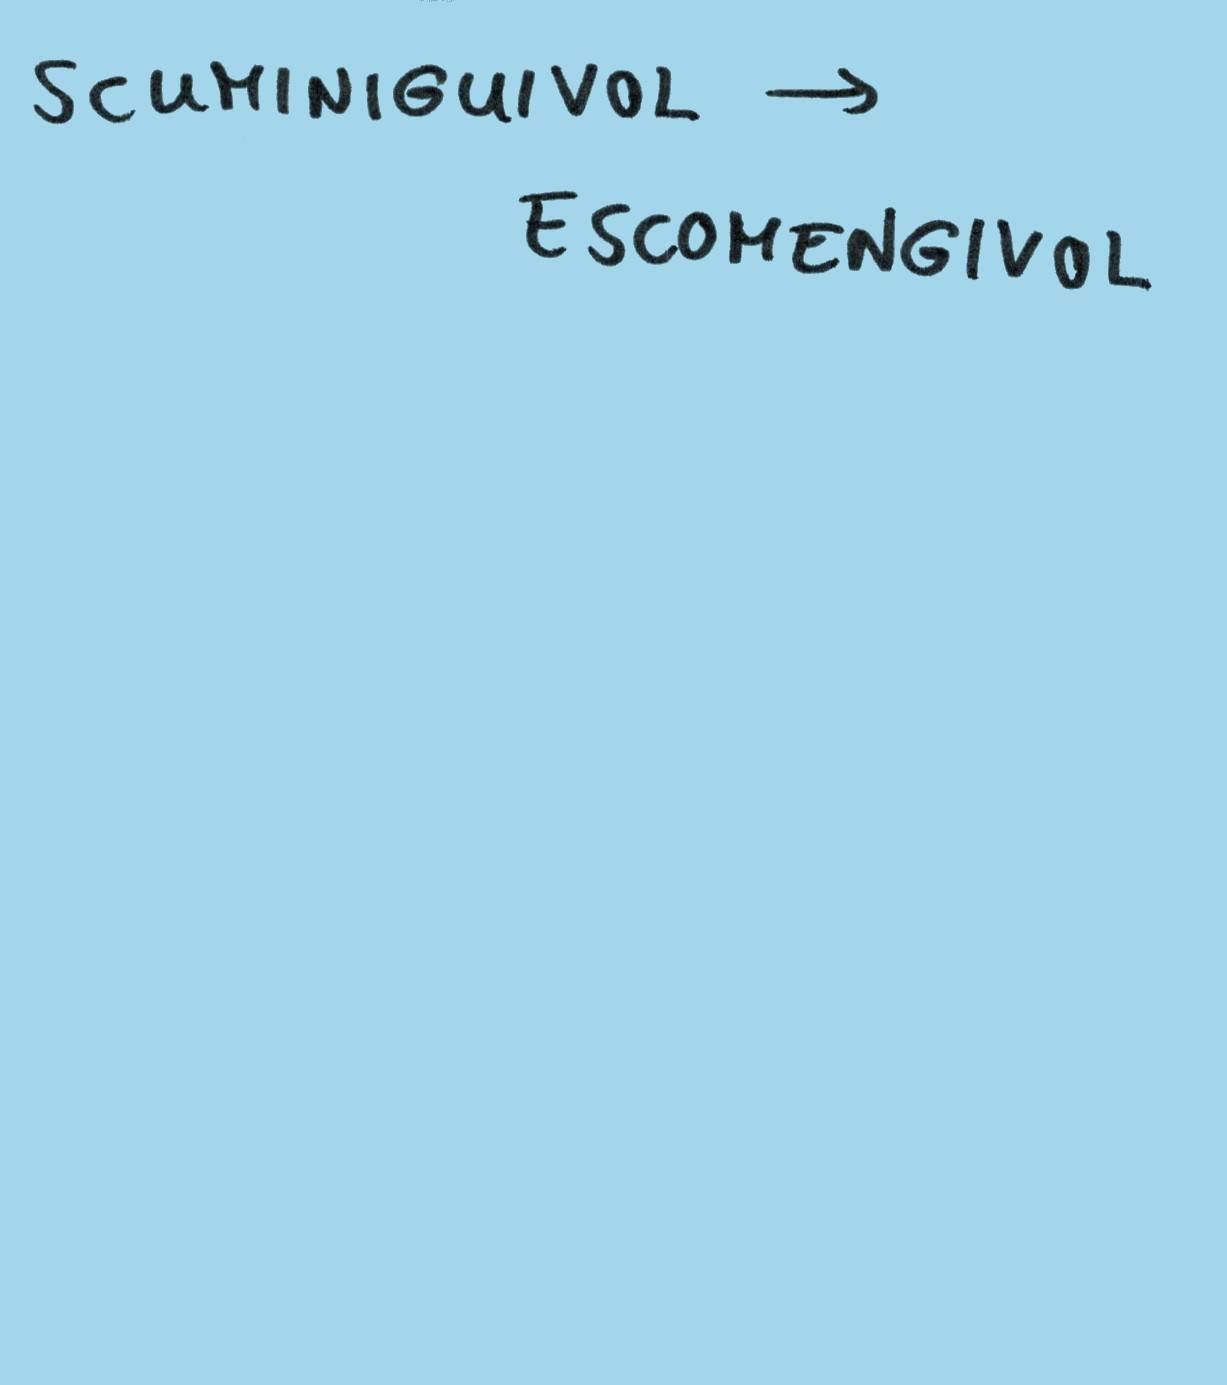 SCUMINIGUIVOL →
ESCOMENGIVOL